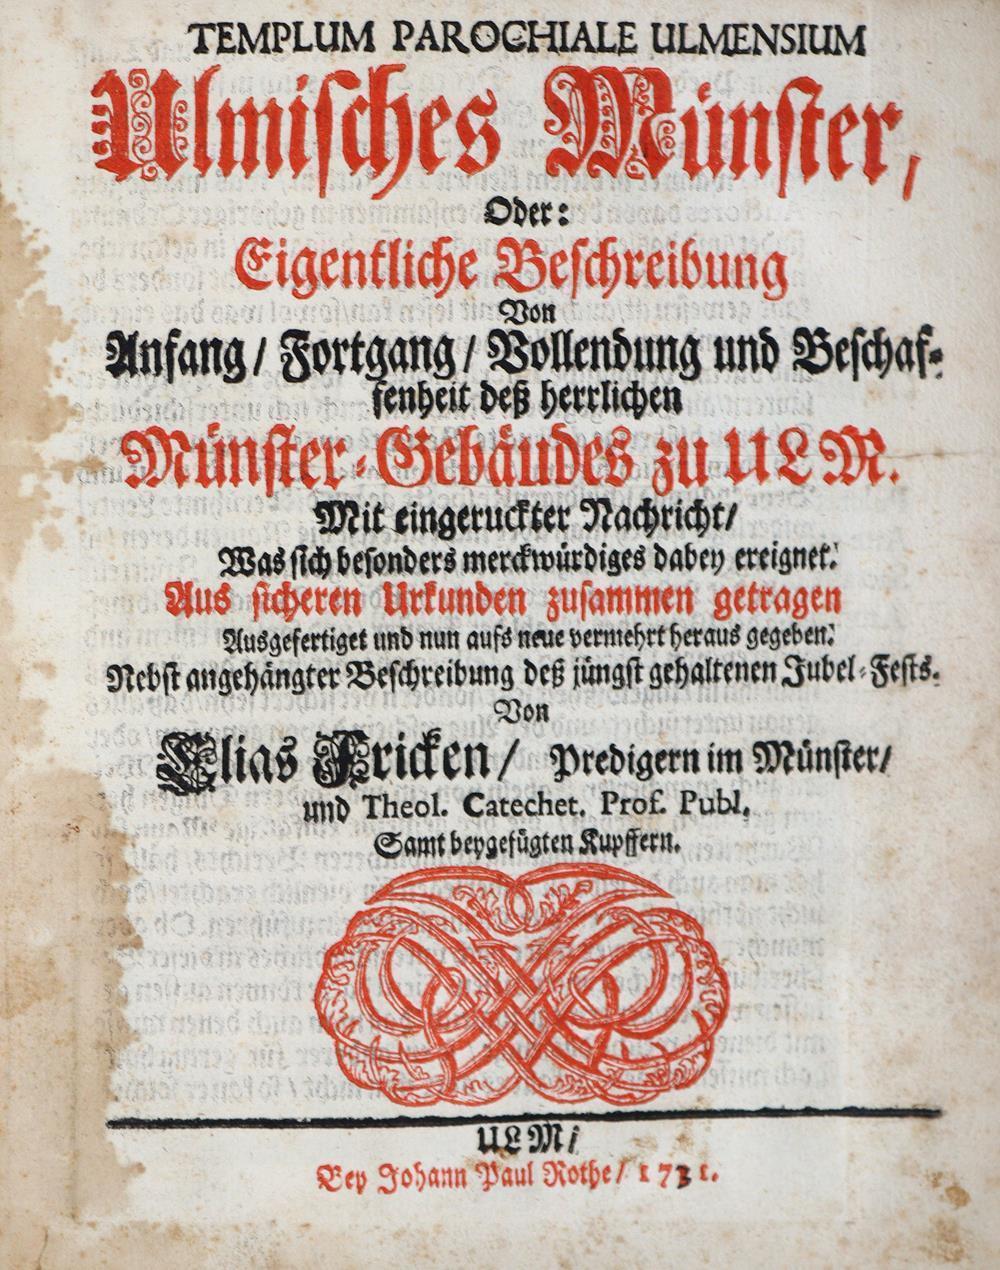 TEMPLUM PAROCHIALE ULMENSIUM
Ulmisches Münster,
Oder:
Eigentliche Beschreibung
Von
Anfang / Fortgang / Vollendung und Beschaf-
fenheit deß herrlichen
Münster-Gebäudes zu ULM.
Mit eingeruckter Nachricht /
Was sich besonders merckwürdiges dabey ereignet:
Aus sicheren Urkunden zusammen getragen
Ausgefertiget und nun aufs neue vermehrt heraus gegeben:
Nebst angehängter Beschreibung deß jüngst gehaltenen Jubel-Fests.
Von
Elias Fricken / Predigern im Münster /
und Theol. Catechet. Prof. Publ.
Samt beygefügten Kupffern.
ULM /
Bey Johann Paul Rothe / 1731.